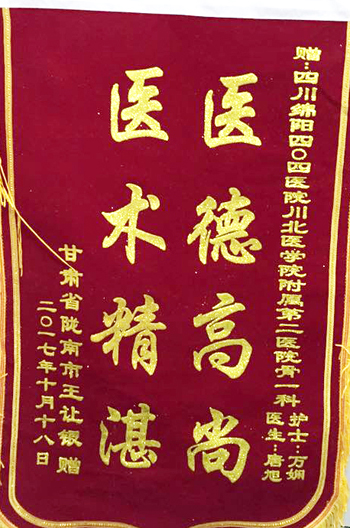 赠：四川绵阳四〇四医院川北医学院附属第二医院骨一科
护士：万娴
医生：唐旭
医德高尚
医术精湛
甘肃省陇南市王让银赠
二〇一七年十月十八日